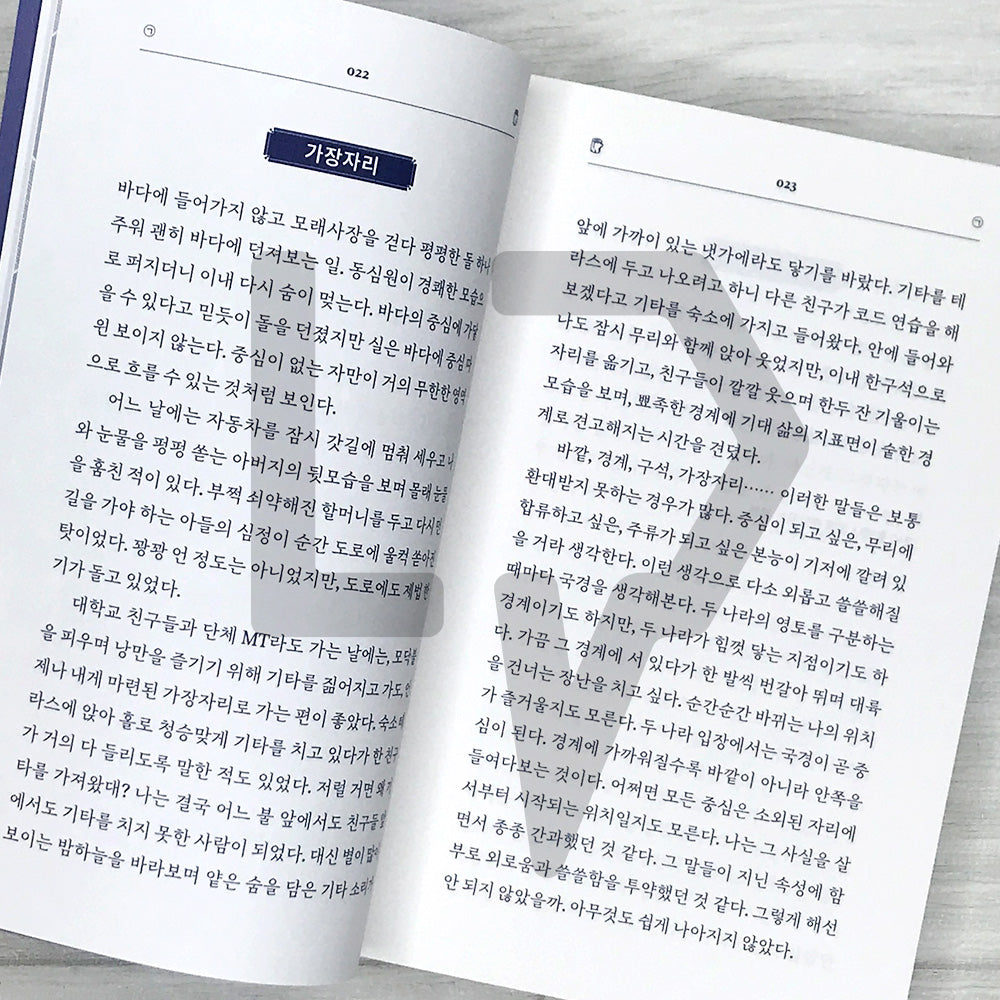 ㉠
022
가장자리
바다에 들어가지 않고 모래사장을 걷다 평평한 돌 하나
주워 괜히 바다에 던져보는 일. 동심원이 경쾌한 모습으
로 퍼지더니 이내 다시 숨이 멎는다. 바다의 중심에 가닿
을 수 있다고 믿듯이 돌을 던졌지만 실은 바다에 중심 따
윈 보이지 않는다. 중심이 없는 자만이 거의 무한한 영역
으로 흐를 수 있는 것처럼 보인다.
어느 날에는 자동차를 잠시 갓길에 멈춰 세우고 나
와 눈물을 펑펑 쏟는 아버지의 뒷모습을 보며 몰래 눈물
을 훔친 적이 있다. 부쩍 쇠약해진 할머니를 두고 다시 먼
길을 가야 하는 아들의 심정이 순간 도로에 울컥 쏟아진
탓이었다. 꽝꽝 언 정도는 아니었지만, 도로에도 제법 한
기가 돌고 있었다.
대학교 친구들과 단체 MT라도 가는 날에는, 모닥불
을 피우며 낭만을 즐기기 위해 기타를 짊어지고 가도, 언
제나 내게 마련된 가장자리로 가는 편이 좋았다. 숙소 테
라스에 앉아 홀로 청승맞게 기타를 치고 있다가 한 친구
가 거의 다 들리도록 말한 적도 있었다. 저럴 거면 왜 기
타를 가져왔대? 나는 결국 어느 불 앞에서도 친구들 앞
에서도 기타를 치지 못한 사람이 되었다. 대신 별이 많이
보이는 밤하늘을 바라보며 얕은 숨을 담은 기타 소리가
023
㉠
앞에 가까이 있는 냇가에라도 닿기를 바랐다. 기타를 테
라스에 두고 나오려고 하니 다른 친구가 코드 연습을 해
보겠다고 기타를 숙소에 가지고 들어왔다. 안에 들어와
나도 잠시 무리와 함께 앉아 웃었지만, 이내 한구석으로
자리를 옮기고, 친구들이 깔깔 웃으며 한두 잔 기울이는
모습을 보며, 뾰족한 경계에 기대 삶의 지표면이 숱한 경
계로 견고해지는 시간을 견뎠다.
바깥, 경계, 구석, 가장자리…… 이러한 말들은 보통
환대받지 못하는 경우가 많다. 중심이 되고 싶은, 무리에
합류하고 싶은, 주류가 되고 싶은 본능이 기저에 깔려 있
을 거라 생각한다. 이런 생각으로 다소 외롭고 쓸쓸해질
때마다 국경을 생각해본다. 두 나라의 영토를 구분하는
경계이기도 하지만, 두 나라가 힘껏 닿는 지점이기도 하
다. 가끔 그 경계에 서 있다가 한 발씩 번갈아 뛰며 대륙
을 건너는 장난을 치고 싶다. 순간순간 바뀌는 나의 위치
가 즐거울지도 모른다. 두 나라 입장에서는 국경이 곧 중
심이 된다. 경계에 가까워질수록 바깥이 아니라 안쪽을
들여다보는 것이다. 어쩌면 모든 중심은 소외된 자리에
서부터 시작되는 위치일지도 모른다. 나는 그 사실을 살
면서 종종 간과했던 것 같다. 그 말들이 지닌 속성에 함
부로 외로움과 쓸쓸함을 투약했던 것 같다. 그렇게 해선
안 되지 않았을까. 아무것도 쉽게 나아지지 않았다.